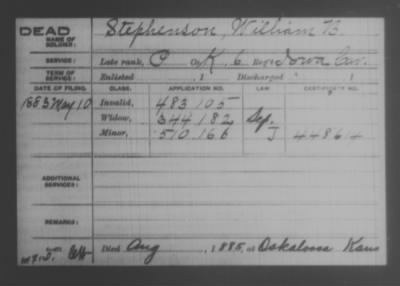 DEAD
NAME OF SOLDIER: Stephenson, William B.
SERVICE: Late rank, P Co. K, 6 Reg't Iowa Cav.
TERM OF SERVICE: Enlisted , 1 Discharged , 1
DATE OF FILING. CLASS. APPLICATION NO. LAW. CERTIFICATE NO.
1883 May 10 Invalid, 483105
Widow, 344182 Sep.
Minor, 510166 J 44861
ADDITIONAL SERVICES:
REMARKS:
Died Aug , 1885, at Oskaloosa Kans